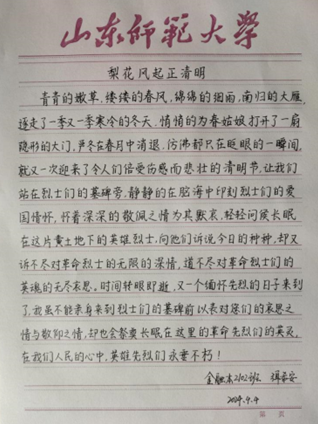 山东师范大学
梨花风起正清明
青青的嫩草,缕缕的春风,绵绵的细雨,南归的大雁,
送走了一季又一季寒冷的冬天,悄悄的为春姑娘打开了一扇
隐形的大门,尹冬在春月中清退,仿沸都只在眨眼的一瞬间,
就又一次迎来了令人们倍受伤感而悲壮的清明节,让我们
站在烈士们的墓碑旁,静静的在脑海中印刻烈士们的爱
国情怀,怀着深深的敬佩之情为其默哀,轻轻问候长眠
在这片黄土地下的英雄烈士,向他们诉说今日的种种,却又
诉不尽对革命烈士的无限的深情,道不尽对革命烈士们的
英魂的无尽哀思。时间转眼即逝,又一个缅怀先烈的日子来到
了,我虽不能亲身来到烈士们的墓碑前以表对您们的哀思之
情与敬仰之情,却也会祭奠长眠在这里的革命先烈们的英灵,
在我们人民的心中,英雄先烈们永垂不朽!
金融本2102班
2024.4.4
第 页